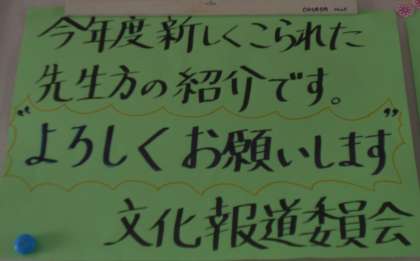 今年度新しくこられた
先生方の紹介です。
"よろしくお願いします"
文化報道委員会